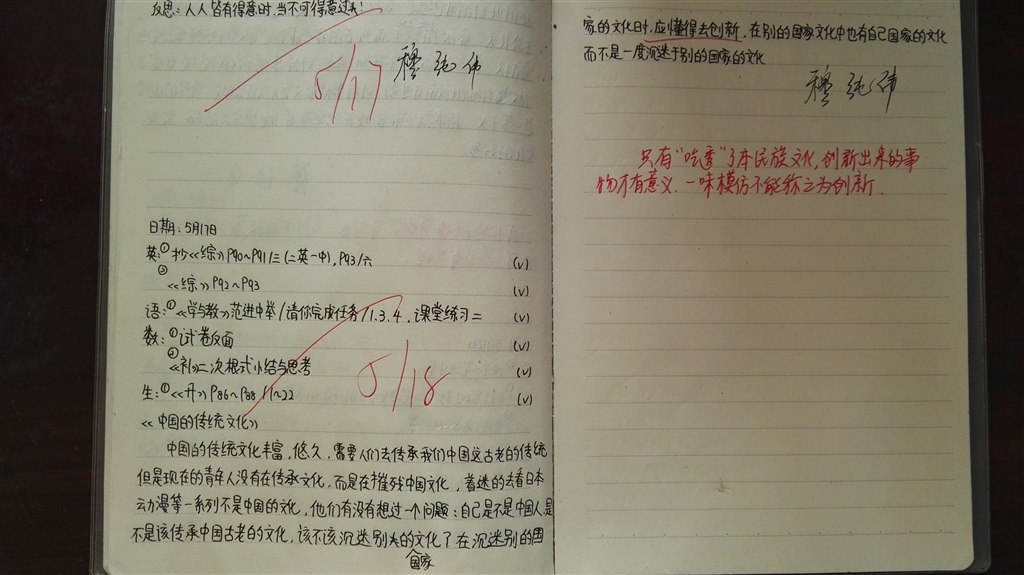 反思：人人皆有得意时，当不可得意过去！
5/17 穆纯伟
日期：5月17日
英：①抄《综》P90~P91/三(二英一中)，P93/六 (√)
②《综》P92~P93 (√)
语：①《学与教》范进中举/请你完成任务/1.3.4，课堂练习二 (√)
数：①试卷反面 (√)
②《补》二次根式小结与思考 (√)
生：①《丹》P86~P88/1~22 (√)
5/18
《中国的传统文化》
中国的传统文化丰富，悠久，需要人们去传承我们中国远古老的传统
但是现在的青年人没有在传承文化，而是在摧残中国文化，着迷的去看日本
动漫等一系列不是中国的文化，他们有没有想过一个问题：自己是不是中国人，是
不是该传承中国古老的文化，该不该沉迷别人的文化了在沉迷别的国
国家
家的文化时，应懂得去创新，在别的国家文化中也有自己国家的文化
而不是一度沉迷于别的国家的文化
穆纯伟
只有“吃透”了本民族文化，创新出来的事
物才有意义，一味模仿不能称之为创新。